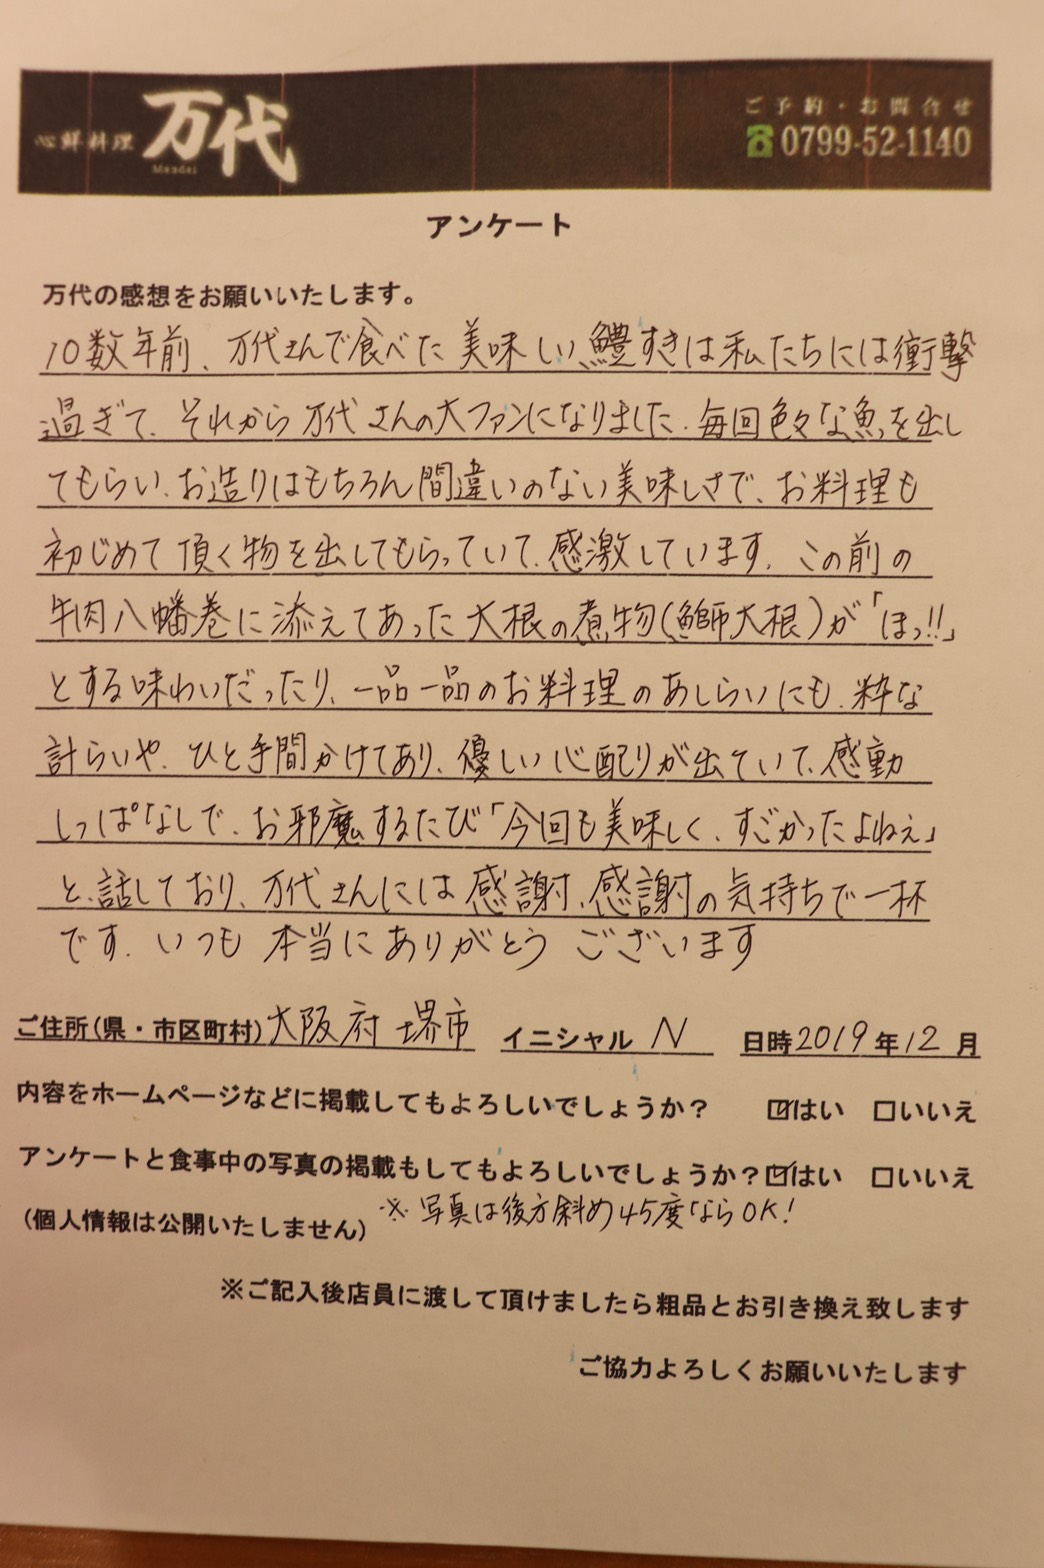 心鮮料理 万代 Mandai
ご予約・お問合せ
☎0799-52-1140
アンケート
万代の感想をお願いいたします。
10数年前、万代さんで食べた美味しい、鱧すきは私たちには衝撃
過ぎて、それから万代さんの大ファンになりました。毎回色々な魚を出し
てもらい、お造りはもちろん間違いのない美味しさで、お料理も
初じめて頂く物を出してもらっていて、感激しています。この前の
牛肉八幡巻に添えてあった大根の煮物(鰤大根)が「ほっ!!」
とする味わいだったり、一品一品のお料理のあしらいにも、粋な
計らいや、ひと手間かけてあり、優しい心配りが出ていて、感動
しっぱなしで、お邪魔するたび「今回も美味しく、すごかったよねぇ」
と、話しており、万代さんには感謝、感謝の気持ちで一杯
です。いつも本当にありがとうございます
ご住所(県・市区町村)大阪府堺市 イニシャル N 日時2019年12月
内容をホームページなどに掲載してもよろしいでしょうか? ☑はい □いいえ
アンケートと食事中の写真の掲載もしてもよろしいでしょうか?☑はい □いいえ
(個人情報は公開いたしません) ※写真は後方斜め45度ならOK!
※ご記入後店員に渡して頂けましたら粗品とお引き換え致します
ご協力よろしくお願いいたします